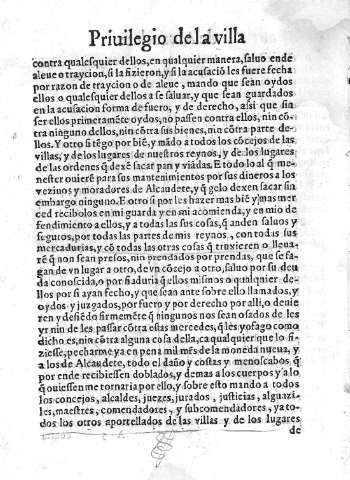 Priuilegio de la villa
contra qualesquier dellos, en qualquier manera, saluo ende
aleue o traycion, si la fizieron, y si la acusació les fuere fecha
por razon de traycion o de aleue, mando que sean oydos
ellos o qualesquier dellos a se saluar, y que sean guardados
en la acusacion forma de fuero, y de derecho, assi que sin
ser ellos primeraméte oydos, no passen contra ellos, nin cō
tra ninguno dellos, nin cōtra sus bienes, nin cōtra parte de-
llos. Y otro si tēgo por biē, y mādo a todos los cōcejos de las
villas, y de los lugares de nuestros reynos, y de los lugares
de las ordenes q̃ dexē sacar pan y viādas. E todo lo al q̃ me-
nester ouierē para sus mantenimientos por sus dineros a los
vezinos y moradores de Alcaudete, y q̃ gelo dexen sacar sin
embargo ninguno. E otro si por les hazer mas biē y mas mer
ced recibolos en mi guarda y en mi acomienda, y en mio de
fendimiento a ellos, y a todas sus cosas, q̃ anden saluos y
seguros, por todas las partes de mis reynos, con todas sus
mercadurias, y cō todas las otras cosas q̃ truxieren o lleua-
rē q̃ non sean presos, nin prendados por prendas, que se fa-
gan de vn lugar a otro, de vn cōcejo a otro, saluo por su deu
da conoscida, o por fiaduria q̃ ellos mismos o qualquier de-
llos por si ayan fecho, y que sean ante sobre ello llamados, y
oydos y juzgados, por fuero y por derecho por alli, o deuie
ren y defiēdo firmeméte q̃ ningunos nos sean osados de les
yr nin de les passar cōtra estas mercedes, q̃ les yo fago como
dicho es, nin cōtra alguna cosa della, ca qualquier que lo fi-
ziesse, pecharme ya en pena mil mr̃s de la moneda nueua, y
a los de Alcaudete, todo el daño y costas y menoscabos q̃
por ende recibiessen doblados, y demas a los cuerpos y a lo
q̃ ouiessen me tornaria por ello, y sobre esto mando a todos
los concejos, alcaldes, juezes, jurados, justicias, alguazi-
les, maestres, comendadores, y subcomendadores, ya to-
dos los otros aportellados de las villas y de los lugares
de